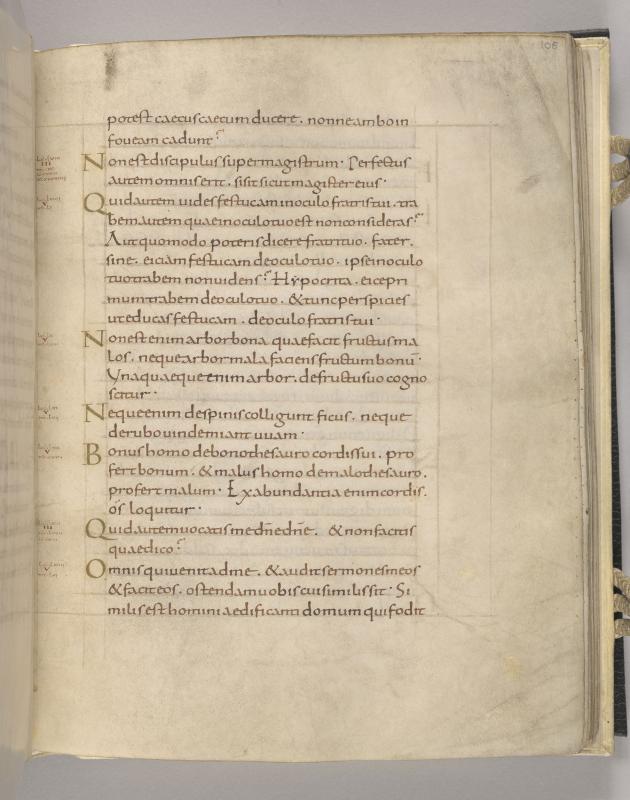 106
potest caecus caecum ducere. nonne ambo in
foueam cadunt?
Non est discipulus super magistrum. Perfectus
autem omnis erit. si sit sicut magister eius.
Quid autem uides festucam in oculo fratris tui. tra
bem autem quae in oculo tuo est non consideras?
Aut quomodo poteris dicere fratri tuo. frater.
sine. eiciam festucam de oculo tuo. ipse in oculo
tuo trabem non uidens? Hypocrita. eice pri
mum trabem de oculo tuo. & tunc perspicies
ut educas festucam. de oculo fratris tui.
Non est enim arbor bona quae facit fructus ma
los. neque arbor mala faciens fructum bonū.
Vnaquaeque enim arbor. de fructu suo cogno
scitur.
Neque enim de spinis colligunt ficus. neque
de rubo uindemiant uuam.
Bonus homo de bono thesauro cordis sui. pro
fert bonum. & malus homo de malo thesauro.
profert malum. Ex abundantia enim cordis.
os loquitur.
Quid autem uocatis me dn̄e dn̄e. & non facitis
quae dico?
Omnis qui uenit ad me. & audit sermones meos
& facit eos. ostendam uobis cui similis sit. Si
milis est homini aedificanti domum qui fodit